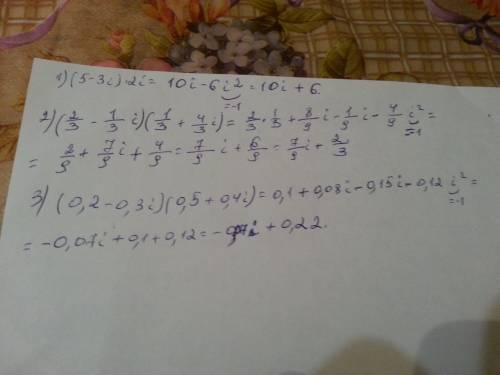 1) (5-3i) 2i = 10i - 6i² = 10i + 6.
=-1
2) (2/3 - 1/3 i)(1/3 + 4/3 i) = 2/3 · 1/3 + 8/9 i - 1/9 i - 4/9 i² =
=-1
= 2/9 + 7/9 i + 4/9 = 7/9 i + 6/9 = 7/9 i + 2/3
3) (0,2-0,3i)(0,5+0,4i) = 0,1+0,08i-0,15i-0,12 i² =
=-1
= -0,07i+0,1+0,12 = -0,07i + 0,22.